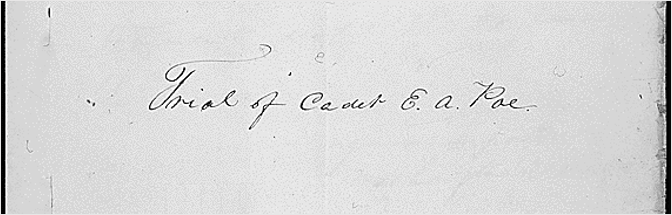 Trial of Cadet E. A. Poe.